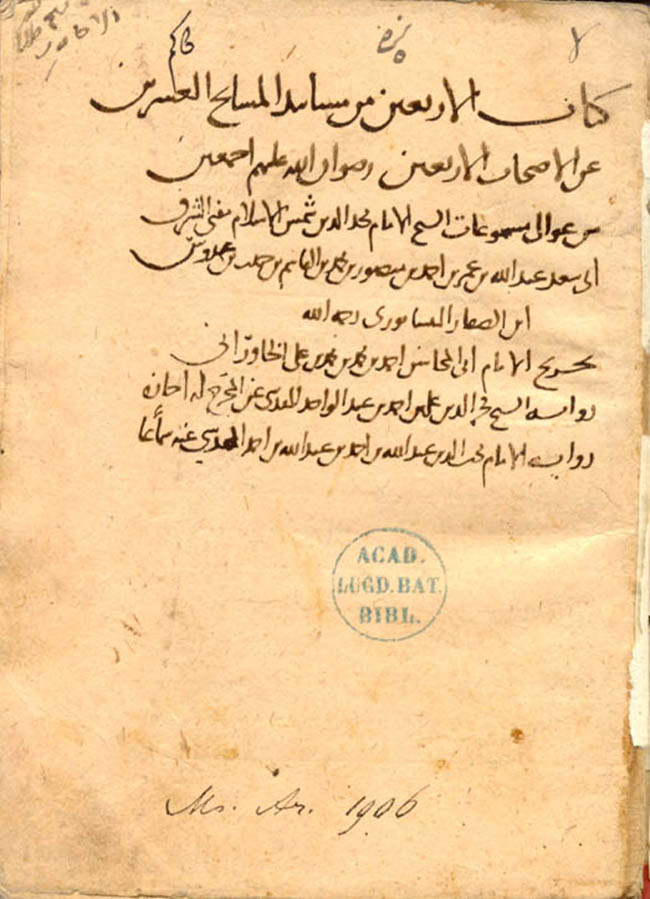 كتاب الاربعين من مسانيد المشايخ العشرين
عن الاصحاب الاربعين رضوان الله عليهم اجمعين
من عوالى مسموعات الشيخ الامام مجد الدين شمس الاسلام مفتى الشرق
ابى سعد عبد الله بن عمر بن احمد بن منصور بن محمد بن القاسم بن حبيب بن عبدوس
ابن الصفار النيسابورى رحمه الله
تخريج الامام ابى المحاسن احمد بن محمد بن محمد بن على
رواية الشيخ فخر الدين على بن احمد بن عبد الواحد المقدسى عن المخرج له اجازة
رواية الامام محب الدين عبد الله بن احمد بن عبد الله بن احمد المقدسى عنه سماعا
ACAD.
LUGD. BAT.
BIBL.
Ms. Ar. 1906